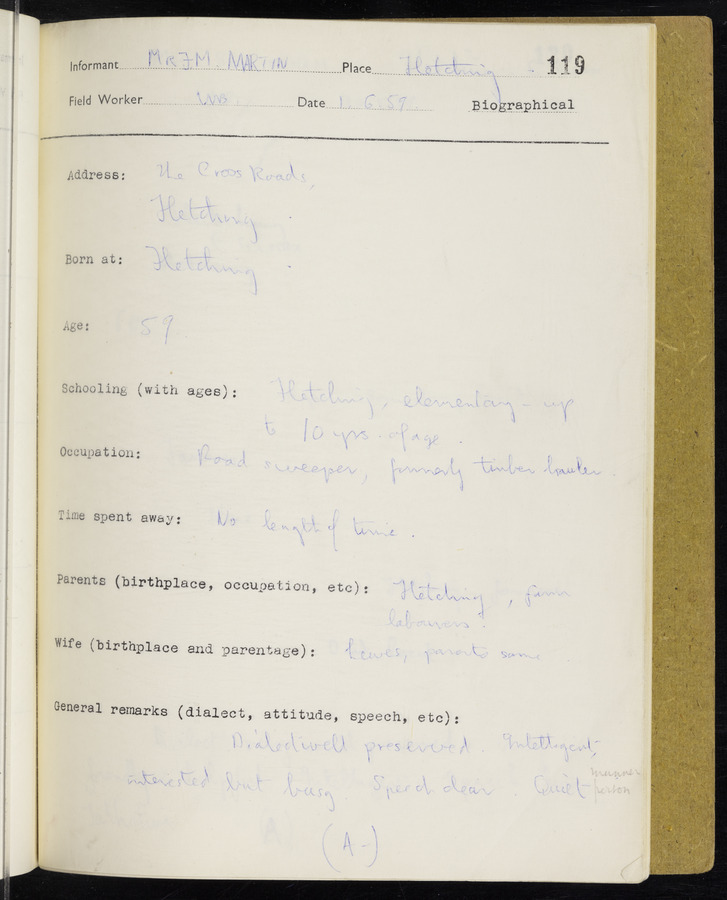 Informant MR F.M. MARTIN Place Fletching 119
Field Worker Date 1. 6. 59 Biographical
Address: The Cross Roads,
Fletching
Born at: Fletching
Age: 59
Schooling (with ages): Fletching, elementary - up
to 10 yrs. of age.
Occupation: Road sweeper, formerly timber hauler.
Time spent away: No length of time.
Parents (birthplace, occupation, etc): Fletching, farm
labourers.
Wife (birthplace and parentage): Lewes, parents same
General remarks (dialect, attitude, speech, etc):
Dialect well preserved. Intelligent,
interested but busy. Speech clear. Quiet person
(A-)